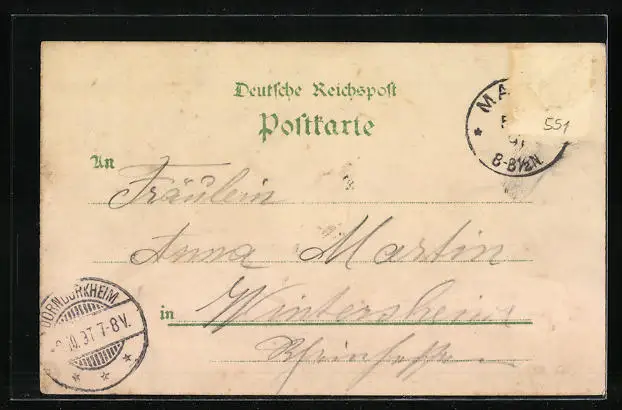 Deutsche Reichspost
Postkarte
An
Fräulein
Anna Martin
in Wintersheim
Rheinhessen
551
MA
8-8½N.
DORNDÜRKHEIM
.10.97 7-8V.